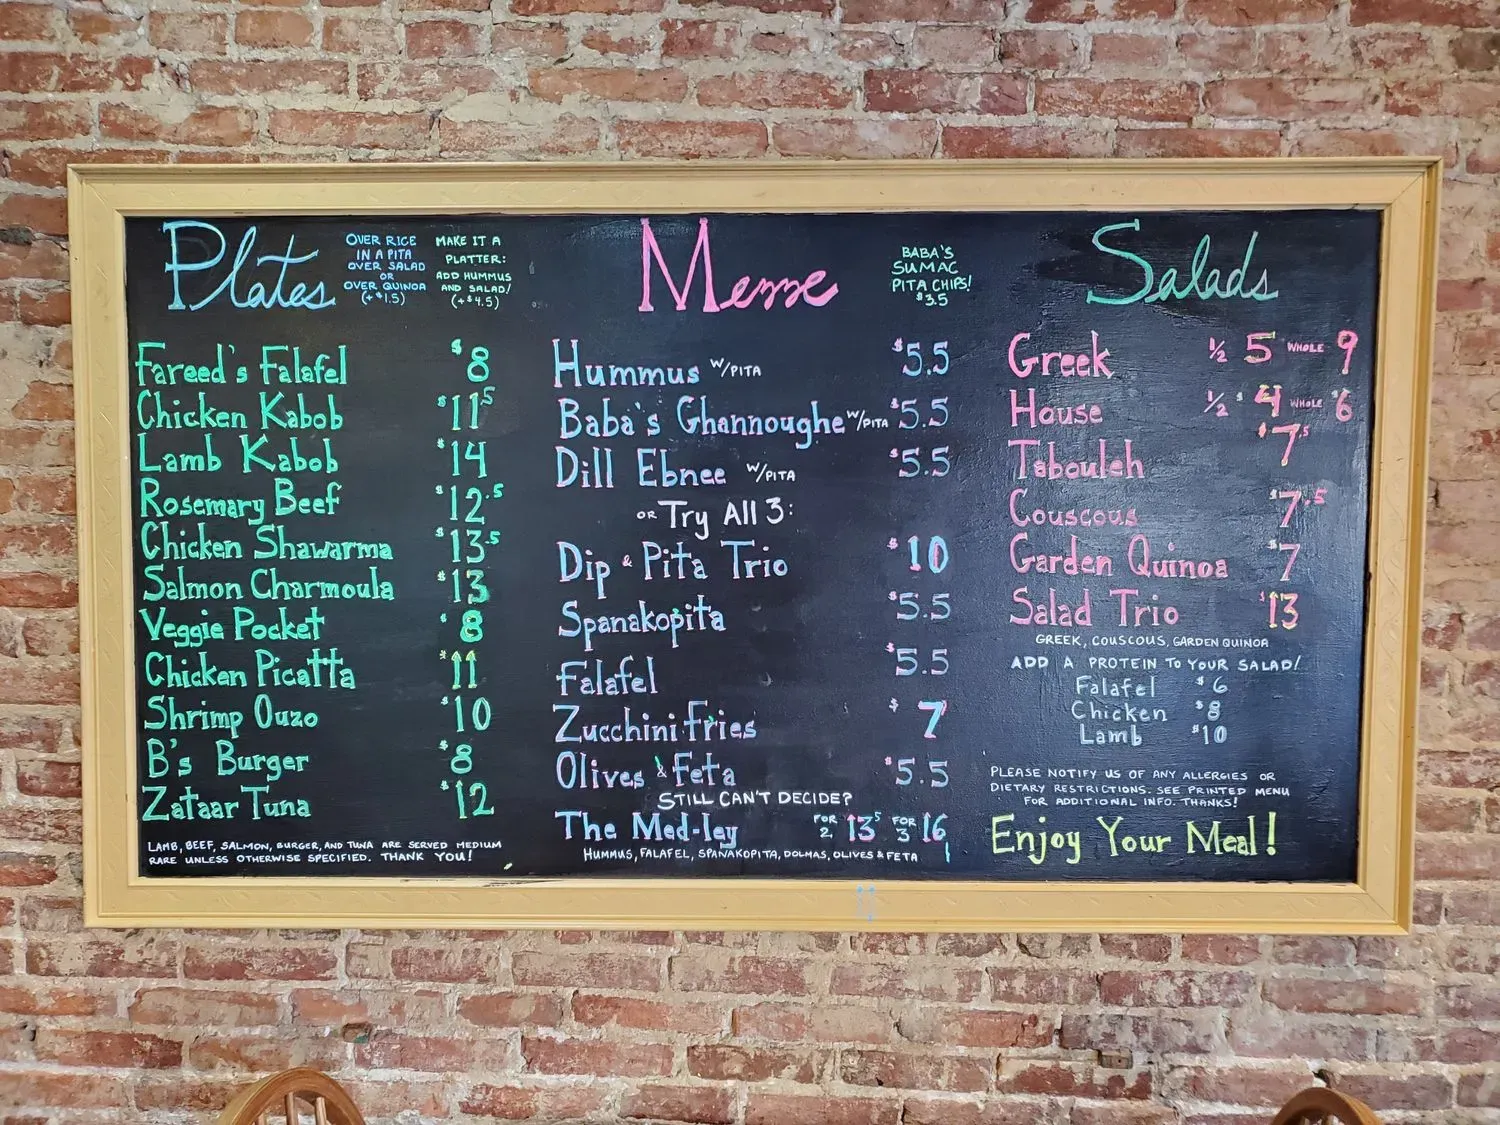 Plates
OVER RICE
IN A PITA
OVER SALAD
OR
OVER QUINOA
(+$1.5)
MAKE IT A
PLATTER:
ADD HUMMUS
AND SALAD!
(+$4.5)
Fareed's Falafel $8
Chicken Kabob $11.5
Lamb Kabob $14
Rosemary Beef $12.5
Chicken Shawarma $13.5
Salmon Charmoula $13
Veggie Pocket $8
Chicken Picatta $11
Shrimp Ouzo $10
B's Burger $8
Zataar Tuna $12
LAMB, BEEF, SALMON, BURGER, AND TUNA ARE SERVED MEDIUM
RARE UNLESS OTHERWISE SPECIFIED. THANK YOU!
Mezze
BABA'S
SUMAC
PITA CHIPS!
$3.5
Hummus W/PITA $5.5
Baba's Ghannoughe W/PITA $5.5
Dill Ebnee W/PITA $5.5
OR Try All 3:
Dip & Pita Trio $10
Spanakopita $5.5
Falafel $5.5
Zucchini Fries $7
Olives & Feta $5.5
STILL CAN'T DECIDE?
The Med-ley FOR 2 13.5 FOR 3 16
HUMMUS, FALAFEL, SPANAKOPITA, DOLMAS, OLIVES & FETA
Salads
Greek 1/2 5 WHOLE 9
House 1/2 $4 WHOLE $6
Tabouleh $7.5
Couscous $7.5
Garden Quinoa $7
Salad Trio $13
GREEK, COUSCOUS, GARDEN QUINOA
ADD A PROTEIN TO YOUR SALAD!
Falafel $6
Chicken $8
Lamb $10
PLEASE NOTIFY US OF ANY ALLERGIES OR
DIETARY RESTRICTIONS. SEE PRINTED MENU
FOR ADDITIONAL INFO. THANKS!
Enjoy Your Meal!